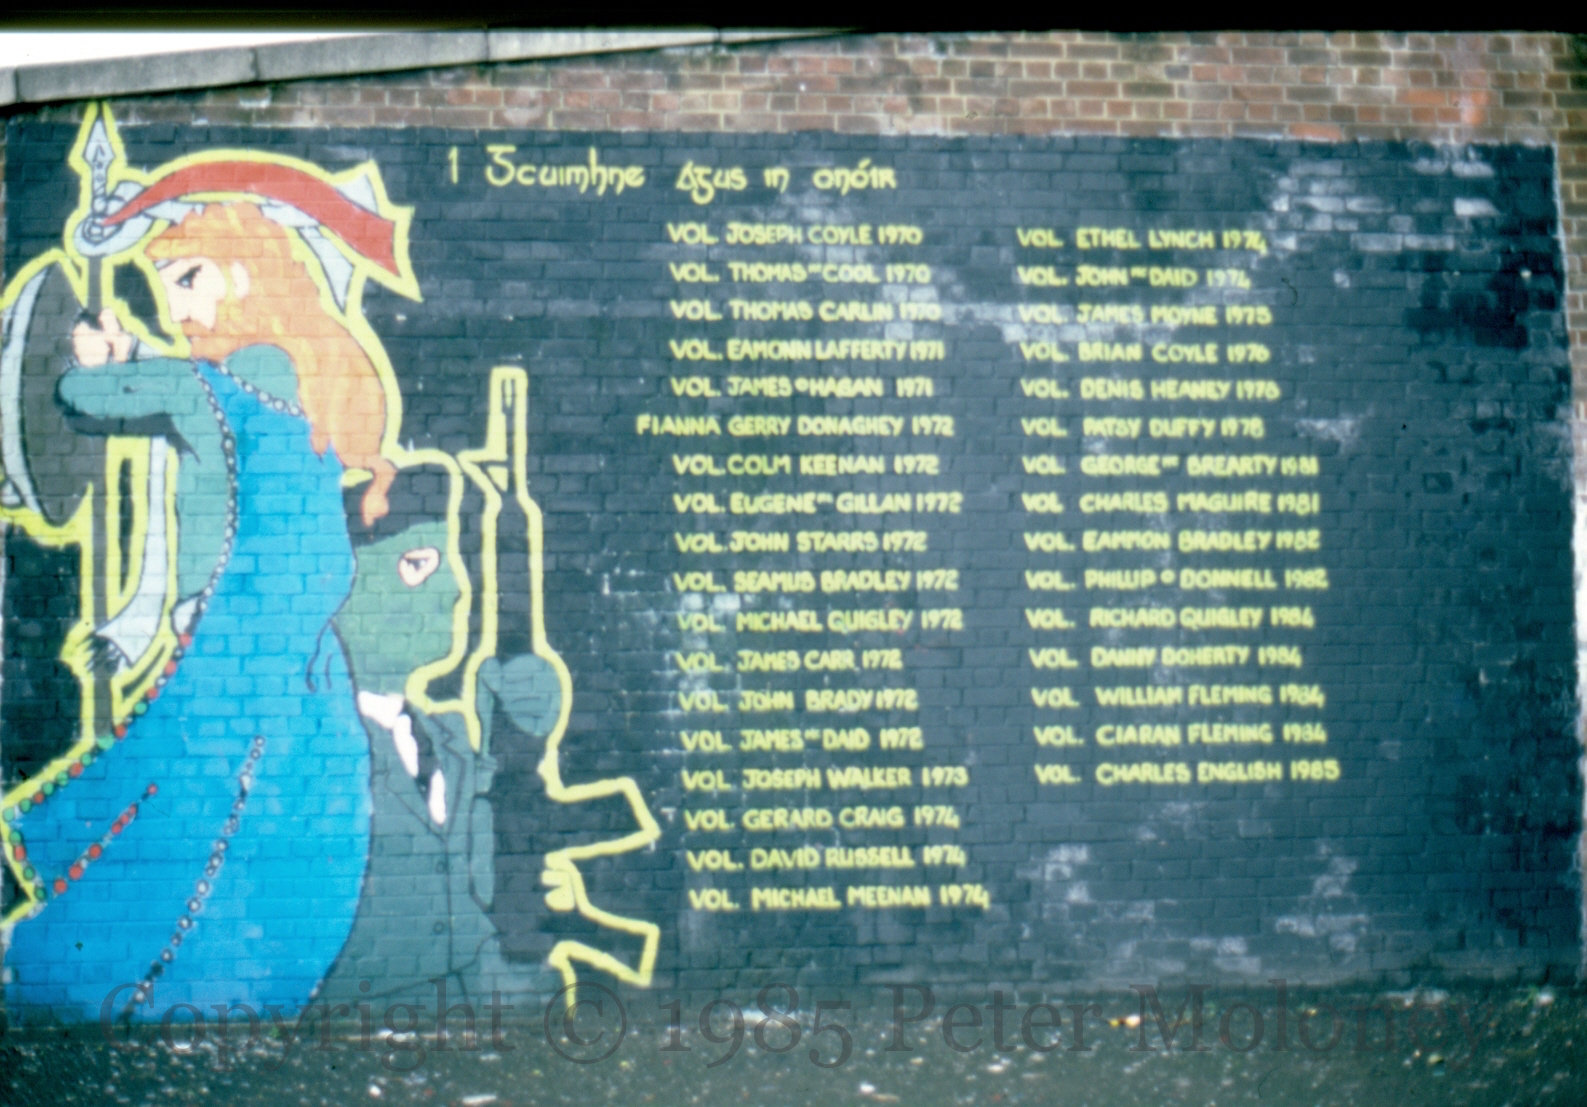 I gcuimhne Agus in onóir
VOL. JOSEPH COYLE 1970
VOL. THOMAS Mc COOL 1970
VOL. THOMAS CARLIN 1970
VOL. EAMONN LAFFERTY 1971
VOL. JAMES O HAGAN 1971
FIANNA GERRY DONAGHEY 1972
VOL. COLM KEENAN 1972
VOL. EUGENE Mc GILLAN 1972
VOL. JOHN STARRS 1972
VOL. SEAMUS BRADLEY 1972
VOL. MICHAEL QUIGLEY 1972
VOL. JAMES CARR 1972
VOL. JOHN BRADY 1972
VOL. JAMES Mc DAID 1972
VOL. JOSEPH WALKER 1973
VOL. GERARD CRAIG 1974
VOL. DAVID RUSSELL 1974
VOL. MICHAEL MEENAN 1974
VOL. ETHEL LYNCH 1974
VOL. JOHN Mc DAID 1974
VOL. JAMES MOYNE 1975
VOL. BRIAN COYLE 1976
VOL. DENIS HEANEY 1978
VOL. PATSY DUFFY 1978
VOL. GEORGE Mc BREARTY 1981
VOL. CHARLES MAGUIRE 1981
VOL. EAMMON BRADLEY 1982
VOL. PHILLIP O DONNELL 1982
VOL. RICHARD QUIGLEY 1984
VOL. DANNY DOHERTY 1984
VOL. WILLIAM FLEMING 1984
VOL. CIARAN FLEMING 1984
VOL. CHARLES ENGLISH 1985
Copyright © 1985 Peter Moloney